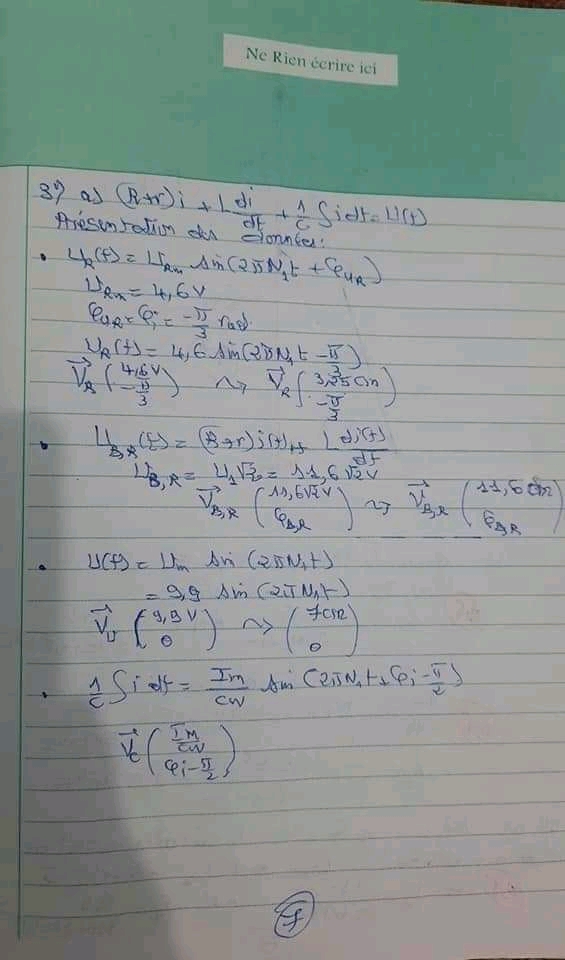 Ne Rien écrire ici
3°) a) (R+r)i + L di/dt + 1/C ∫idt = U(t)
Présentation des données:
• U_R(t) = U_Rm sin(2πN₁t + φ_UR)
U_Rm = 4,6V
φ_UR = φ_i = -π/3 rad.
U_R(t) = 4,6 sin(2πN₁t - π/3)
V⃗_R (4,6V ; -π/3) ⇝ V⃗_R (3,25cm ; -π/3)
• U_B,R(t) = (R+r)i(t) + L di(t)/dt
U_B,R = U₁√2 = 11,6√2V
V⃗_B,R (11,6√2V ; φ_B,R) ⇝ V⃗_B,R (11,6cm ; φ_B,R)
• U(t) = U_m sin(2πN₁t)
= 9,9 sin(2πN₁t)
V⃗_U (9,9V ; 0) ⇝ (7cm ; 0)
• 1/C ∫idt = Im/CW sin(2πN₁t + φ_i - π/2)
V⃗_C (Im/CW ; φ_i - π/2)